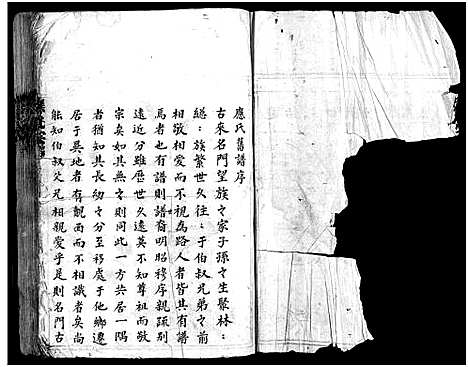 應氏舊譜序
古來名門望族之家子孫之生聚林:
總:族繁世久往:于伯叔兄弟之前
相敬相愛而不視為路人者皆其有譜
焉者也有譜則譜裔明昭穆序親疏別
遠近分雖歷世久遠莫不知尊祖而敬
宗矣如其無之則同此一方共居一隅
者猶知其長幼之分至移處于他鄉遷
居于異地者有覿面而不相識者矣尚
能知伯叔父兄相親愛乎是則名門古